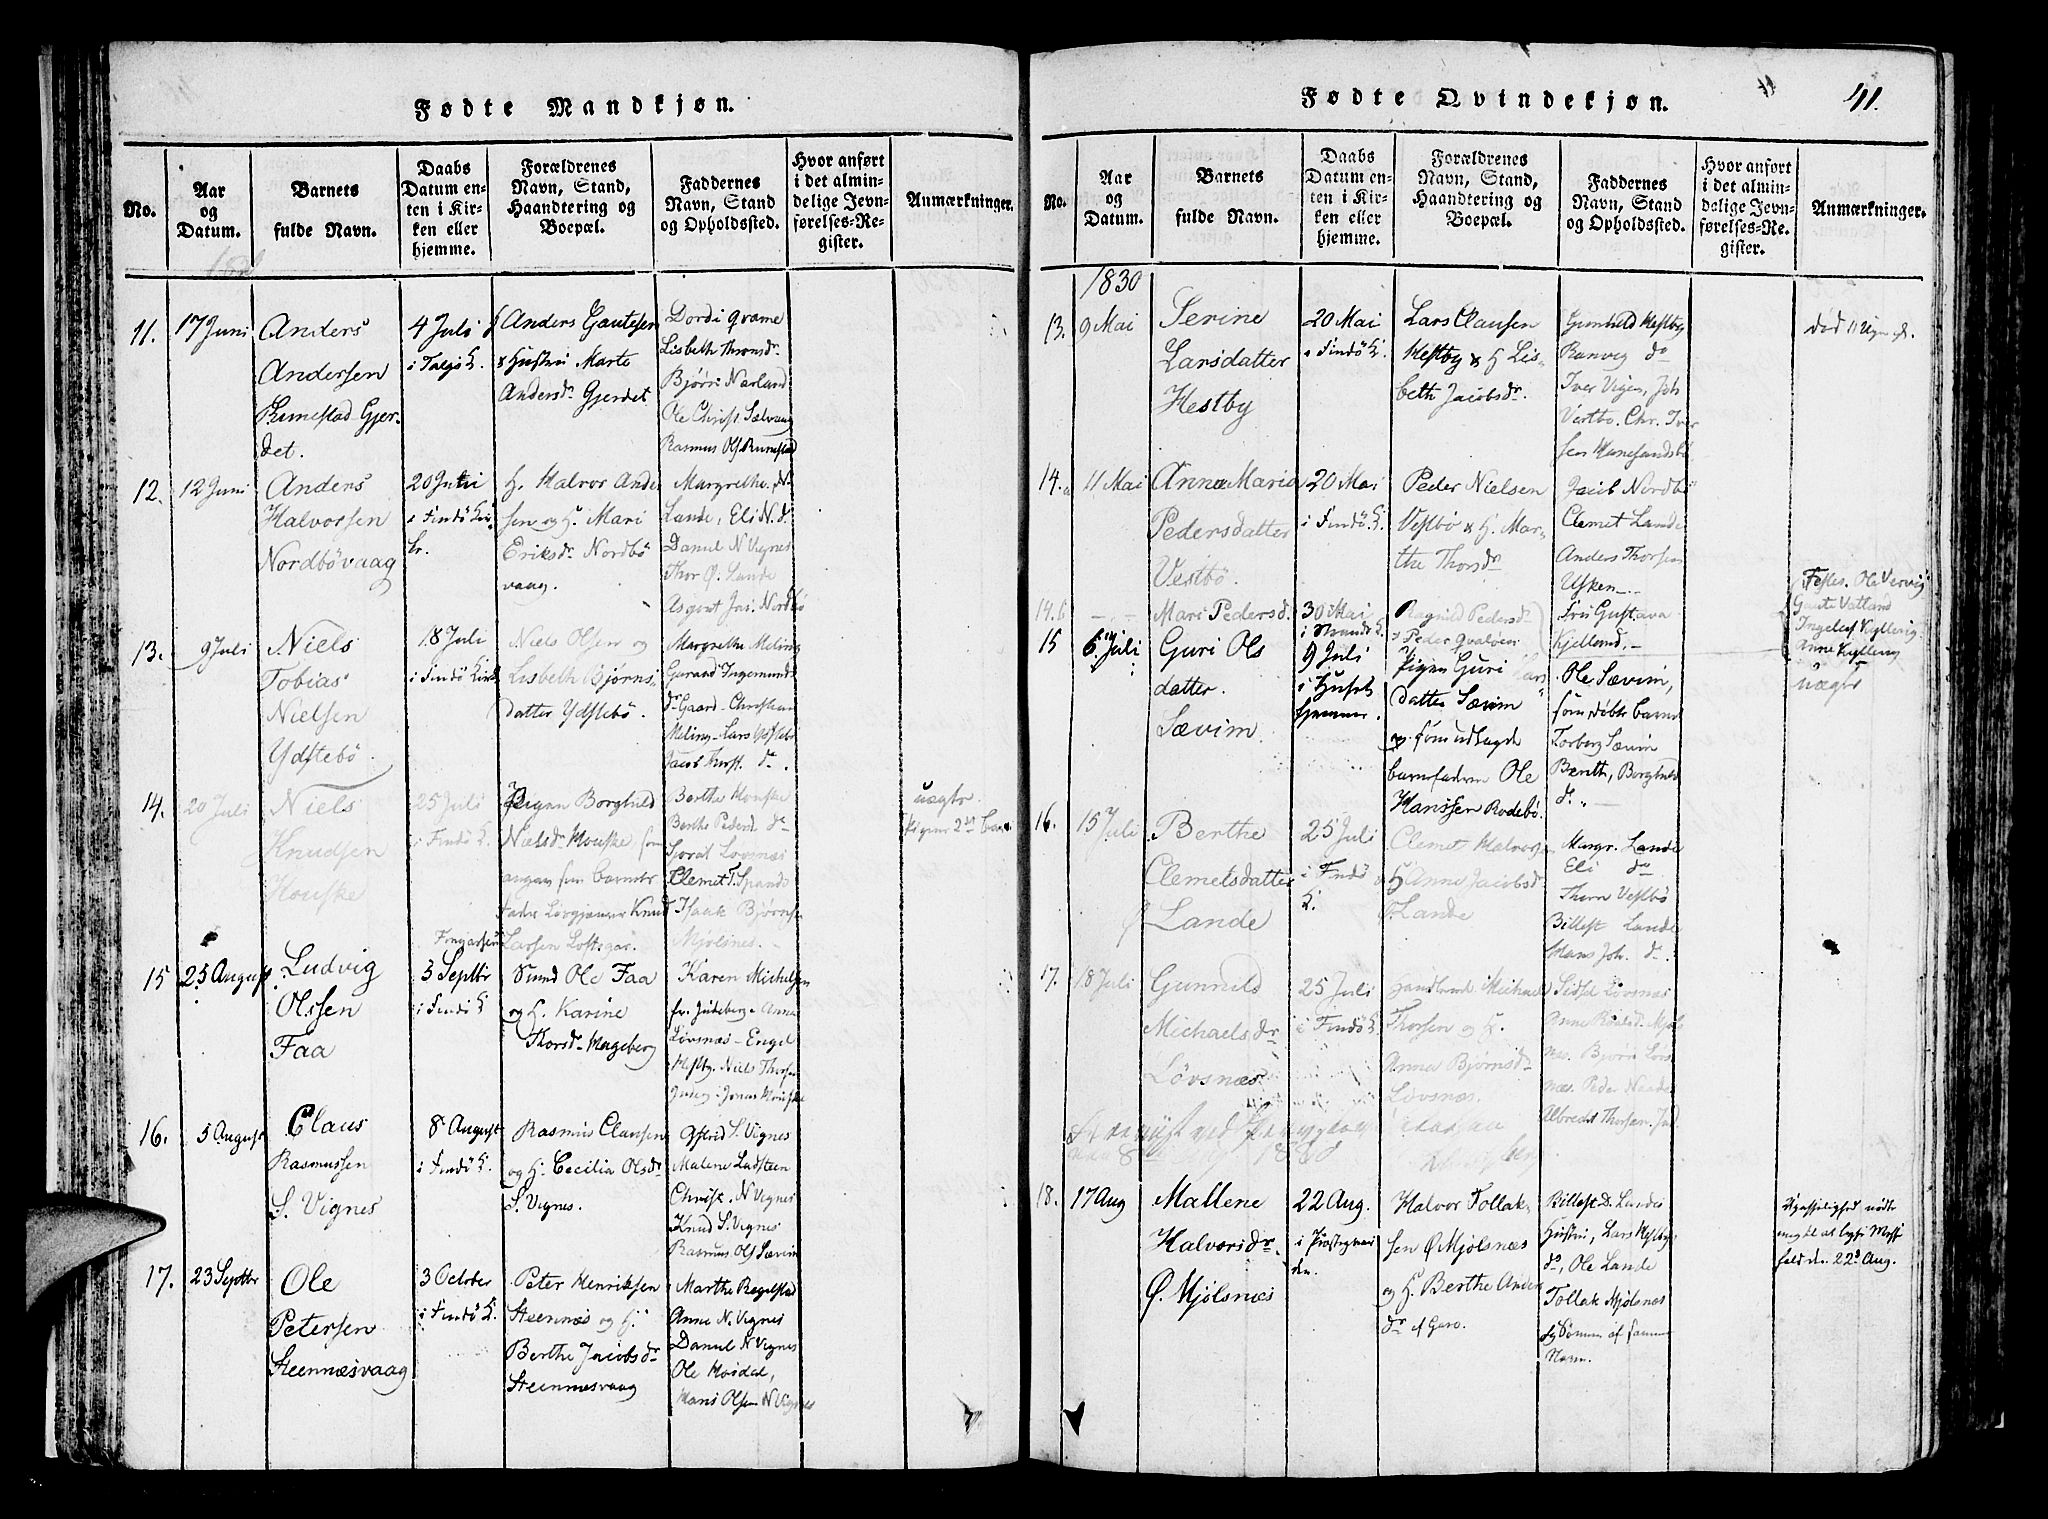 Fødte Mandkjøn.
No.
Aar
og
Datum.
Barnets
fulde Navn.
Daabs
Datum en-
ten i Kir-
ken eller
hjemme.
Forældrenes
Navn, Stand,
Haandtering og
Boepæl.
Faddernes
Navn, Stand
og Opholdssted.
Hvor anført
i det almin-
delige Jevn-
førelses-Re-
gister.
Anmærkninger.
11.
17 Juni
Anders
Andersen
Rimestad Gjer-
det.
4 Juli
i Talgø K.
Anders Gautesen
& Hustru Marte
Andersdr Gjerdet
Dordi Qvame
Lisbeth Thronsdr
Bjørn Narland
Ole Christ. Sælvaag
Rasmus Ols. Rimestad
12.
12 Juni
Anders
Halvorsen
Nordbövaag
20 Juli
i Findö Kir-
ke.
H. Halvor Ander
sen og H. Mari
Eriksdr Nordbö
vaag.
Margrethe N.
Lande, Eli N. do
Daniel N Vignes
Thor Ø. Lande
Asgout Jac. Nordbö
13.
9 Juli
Niels
Tobias
Nielsen
Ydstebö
18 Juli
i Findö Kirk
Niels Olsen og
Lisbeth Bjørns-
datter Ydstebö.
Margrethe Meling
Gurand Ingemunds
dr Gaard - Christian
Meling - Lars Ydstebö
Jacob Thorst. do.
14.
20 Juli
Niels
Knudsen
Houske
25 Juli
i Findö K.
Pigen Borghild
Nielsdr Houske som
angav som barnets
Fader Løsgjænger Knud
Larsen Loftsgar.
Berthe Houske
Berthe Pedersd do
Sjovat Lovsnæs
Clemet T. Spande
Isaak Bjørnsen
Mjölsnes.
uægte
Pigens 2det barn.
15
25 August
Ludvig
Olssen
Faa
3 Septbr
i Findö K
Smed Ole Faa
og H. Karine
Thorsdr Hageberg
Karen Michelsen
fr. Judeberg - Anna
Lövsnæs - Engel
Hestby. Niels Thorsen
Juseg - Jonas Houske
16.
5 August
Claus
Rasmussen
S. Vignes
8 August
i Findö K.
Rasmus Clausen
og H. Cecilia Olsdr
S. Vignes.
Astrid S. Vignes
Malene Ladsteen
Christ. N Vignes
Knud S. Vignes
Rasmus Ols Sævim
17.
23 Septbr
Ole
Petersen
Steennæsvaag
3 October
i Findö K.
Peter Henriksen
Steennæs og H.
Berthe Jacobsdr
Steennæsvaag
Marthe Regelstad
Anne N. Vignes
Daniel N Vignes
Ole Hosdal,
Hans Olsen N Vignes
Fødte Qvindekjøn.
41.
No.
Aar
og
Datum.
Barnets
fulde Navn.
Daabs
Datum en-
ten i Kir-
ken eller
hjemme.
Forældrenes
Navn, Stand,
Haandtering og
Boepæl.
Faddernes
Navn, Stand
og Opholdssted.
Hvor anført
i det almin-
delige Jevn-
førelses-Re-
gister.
Anmærkninger.
1830
13.
9 Mai
Serine
Larsdatter
Hestby
20 Mai
i Findö K.
Lars Clausen
Hestby & H Lis-
beth Jacobsdr.
Gunhild Hestby
Ranveg do
Iver Vigen, Joh
Vestbo. Chr. Iver
sen Hanesandsbö
död
14.a
11 Mai
Anna Maria
Pedersdatter
Vestbö.
20 Mai
i Findö K.
Peder Nielsen
Vestbö & H. Mar-
the Thorsdr
Jacob Nordbö
Clemet Lande
Anders Thorsen
Usken
14.b
Mari Pedersd.
30 Mai
i Strands K.
Ragnild Pedersdr
& Peder Qvalöen
Frü Gustava
Kjelland.
Festes. Ole Vervig
Gaute Vatland
Ingeleif Kylleng-
Anne Kylleng
uægte
15
6 Juli
Guri Ols
datter.
Sævim
9 Juli
i Huset
hjemme.
Pigen Guri Lars
datter Sævim
og som udlagde
barnefaderen Ole
Hanssen Rodebö.
Ole Sævim,
som döbte barnet
Torberg Sævim
Berith, Borghild
do.
16.
15 Juli
Berthe
Clemetsdatter
Ø Lande
25 Juli
i Findö
K.
Clemet Halvorsen
& H Anne Jacobsdr
Ø Lande
Margr. Lande
Eli do
Thorn Vestbö
Billest Lande
Hans Joh. do.
17.
18 Juli
Gunnild
Michaelsdr
Lövsnæs
25 Juli
i Findö K
Handlende Michael
Thorsen og H.
Anna Bjørnsdr
Lovsnæs.
Sidsel Lövsnæs
Anne Roalsd. Mjöls
nes. Bjørn Lövs
næs. Peder Naade
Albrecht Thorsen Jud
18.
17 Aug
Mallene
Halvorsdr
Ø. Mjölsnæs
22 Aug.
i Præstegaar
den.
Halvor Tollak-
sen Ø Mjölsnæs
og H. Berthe Anders
dr af Garo.
Billest D. Landes
Hustru, Lars Hestby
do, Ole Lande
Tollak Mjölsnæs
og Sönnen af samme
Navn.
Upasselighed nödte
mig til at lyse Mess
fald den 22de Aug.